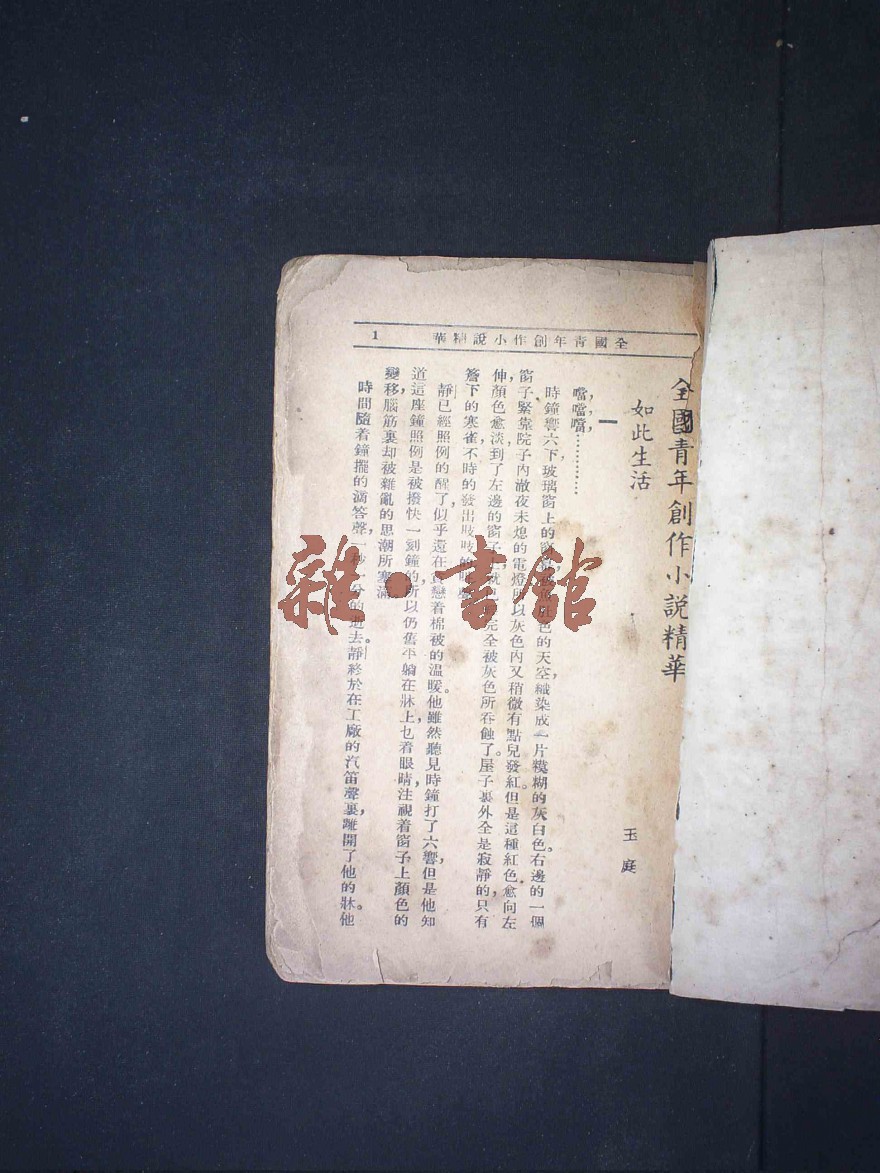 全國青年創作小說精華
1
全國青年創作小說精華
如此生活
玉庭
一
噹,噹,噹,…………
時鐘響六下,玻璃窗上的 色的天空,織染成一片糢糊的灰白色。右邊的一個
窗子,緊靠院子內澈夜未熄的電燈,所以灰色內又稍微有點兒發紅。但是這種紅色愈向左
伸,顏色愈淡,到了左邊的窗子 完全被灰色所吞蝕了。屋子裏外全是寂靜的,只有
簷下的寒雀,不時的發出吱吱的
靜已經照例的醒了,似乎還在 戀着棉被的溫暖。他雖然聽見時鐘打了六響,但是他知
道這座鐘照例是被撥快一刻鐘的,所以仍舊平躺在牀上,乜着眼睛,注視着窗子上顏色的
變移,腦筋裏却被雜亂的思潮所塞滿
時間隨着鐘擺的滴答聲,一秒一分的逝去。靜終於在工廠的汽笛聲裏,離開了他的牀。他
雜·書館